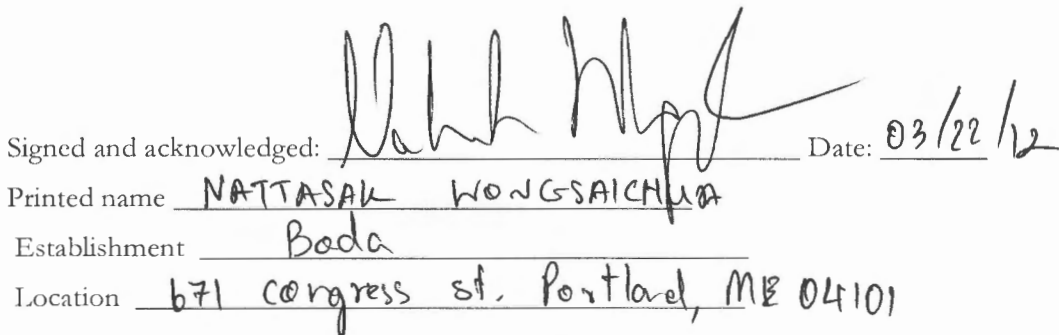 Signed and acknowledged: Date: 03/22/12
Printed name NATTASAK WONGSAICHUA
Establishment Boda
Location 671 congress st. Portland, ME 04101